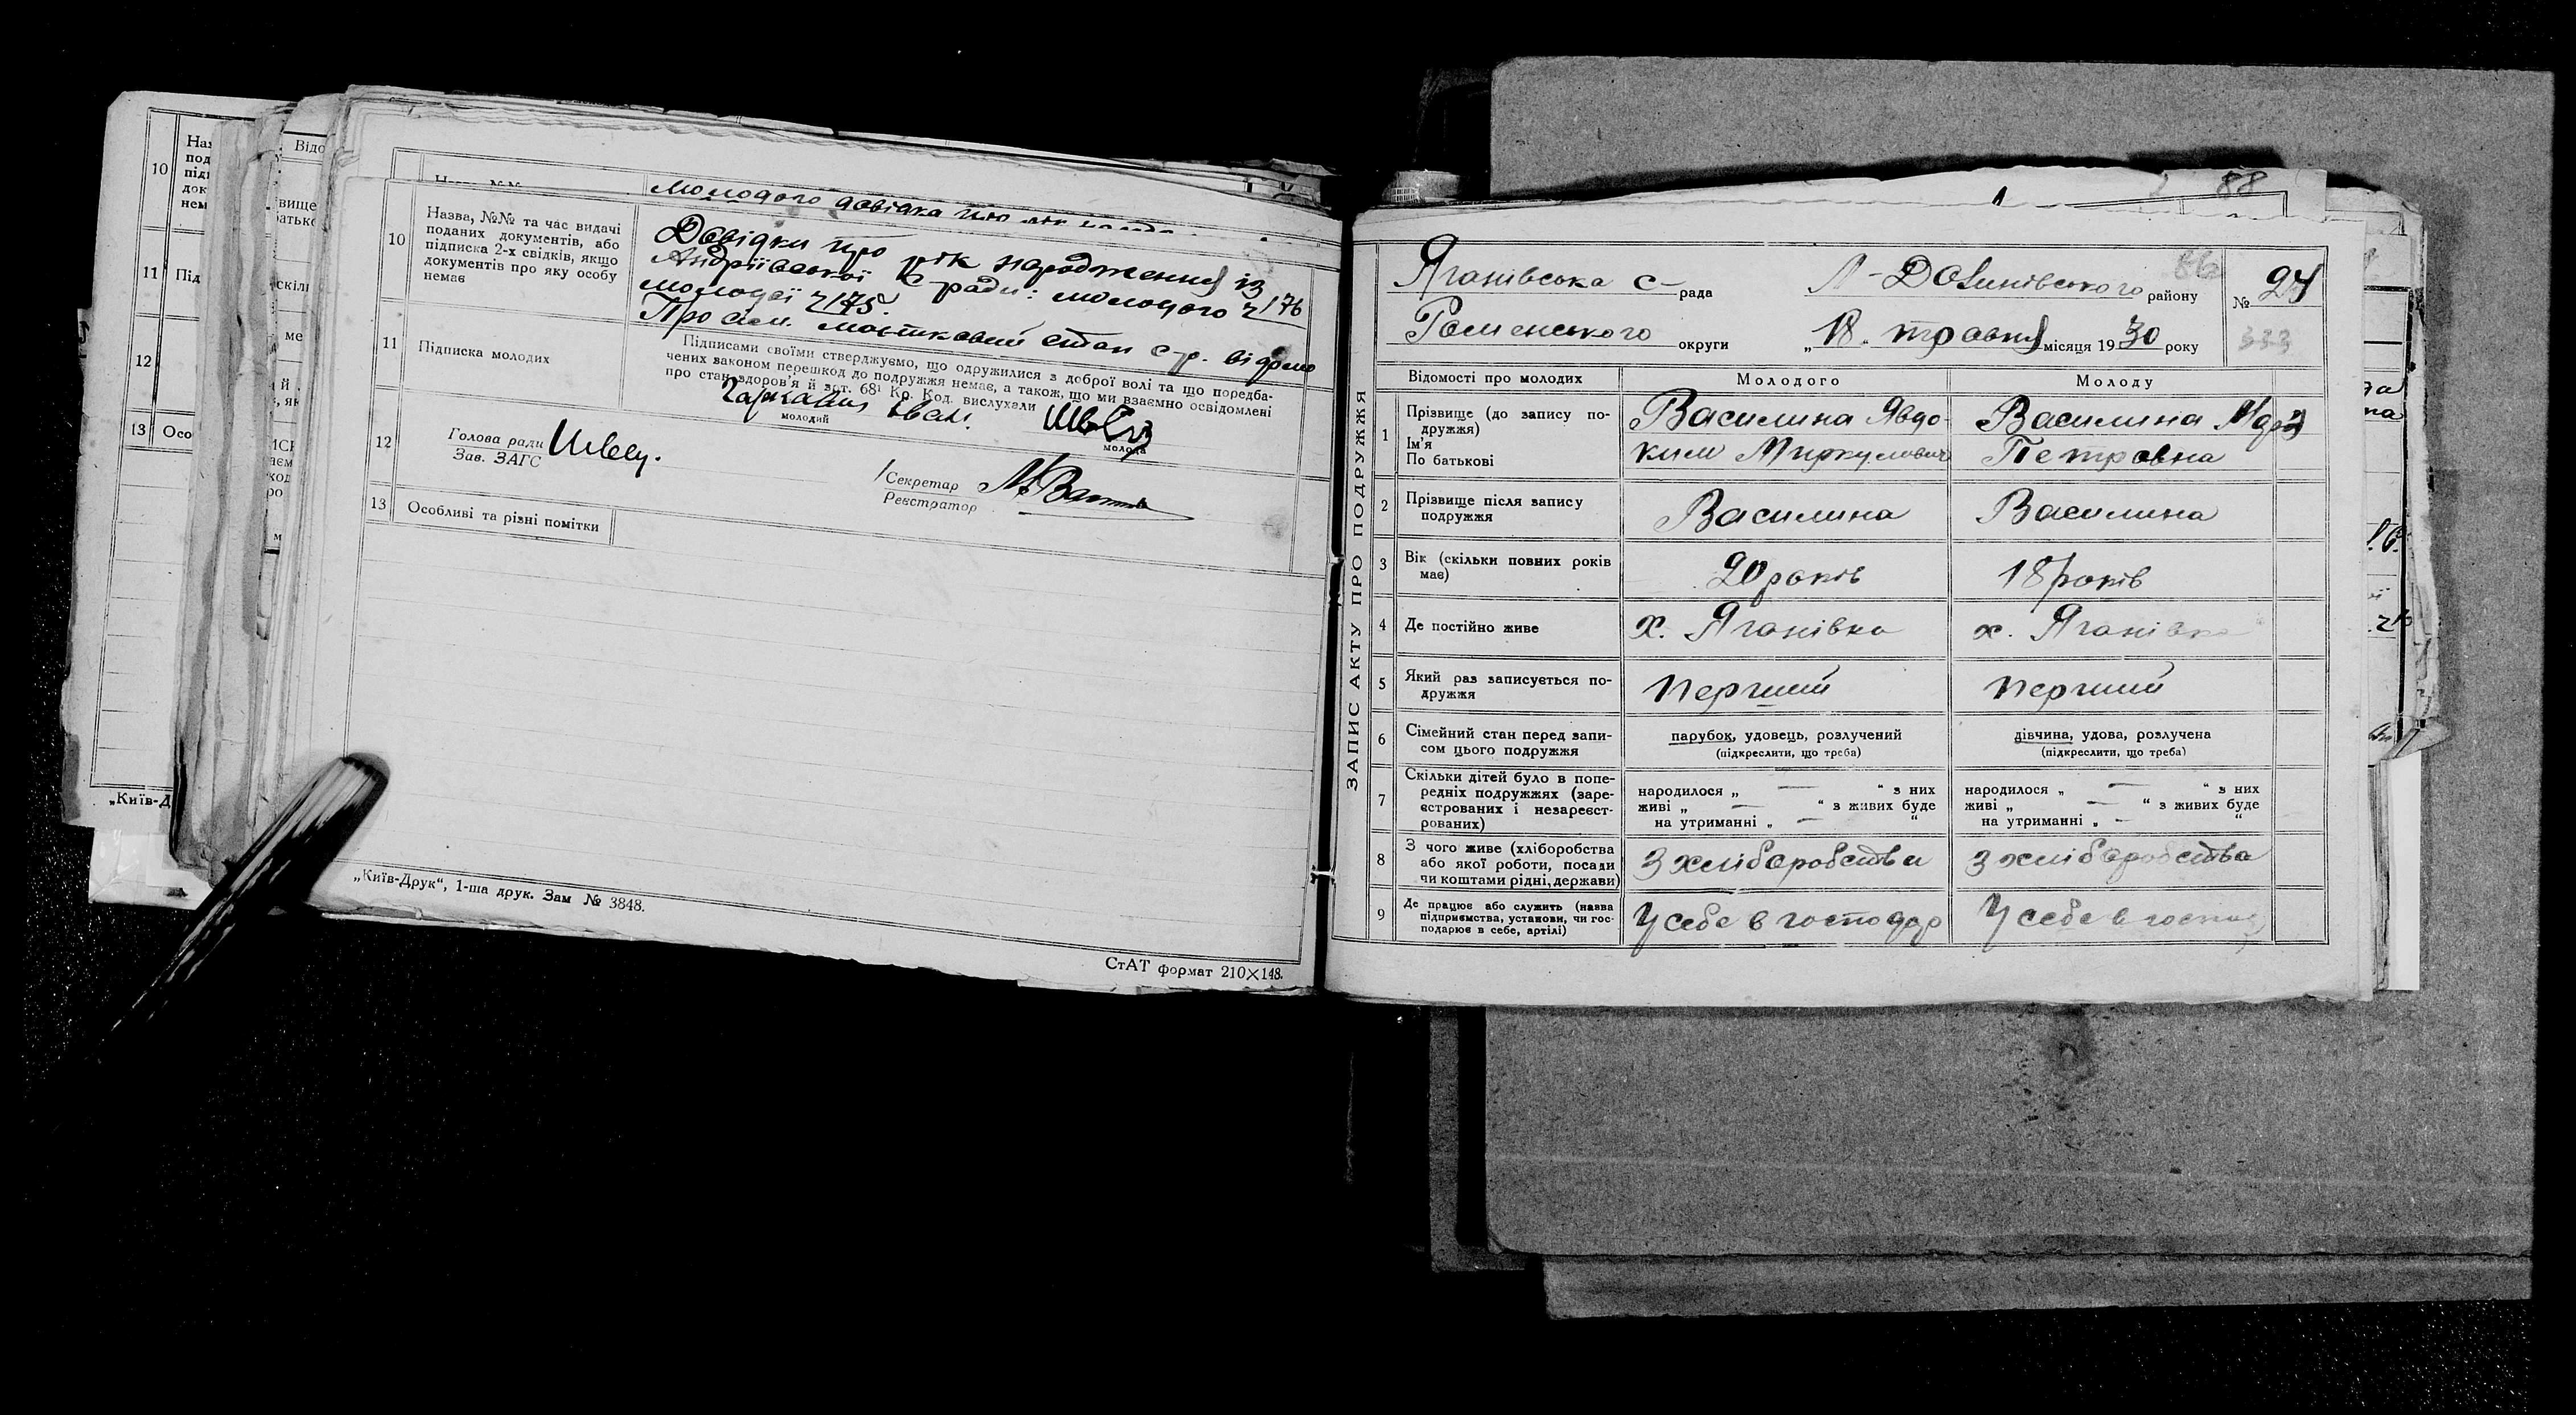 10
11
12
13 Осо
„Київ-Д
10 Назва, №№ та час видачі
поданих документів, або
підписка 2-х свідків, якщо
документів про яку особу
немає
Молодого довідка про рік
Довідки про рік народження із
Андріївської С ради: молодого
молодої
Про сем. майновий стан с-р. відомо
11 Підписка молодих
Підписами своїми стверджуємо, що одружилися з доброї волі та що передба-
чених законом перешкод до подружжя немає, а також, що ми взаємно освідомлені
про стан здоров'я й зст. 68¹ Кр. Код. вислухали
Іван
молодий
молода
12 Голова ради
Зав. ЗАГС
Секретар
Реєстратор
13 Особливі та різні помітки
„Київ-Друк“, 1-ша друк. Зам № 3848.
СтАТ формат 210×148.
88
ЗАПИС АКТУ ПРО ПОДРУЖЖЯ
Яганівська с- рада
району
№ 24
Роменського округи
„18. травня місяця 1930 року
333
Відомості про молодих Молодого Молоду
1 Прізвище (до запису по-
дружжя)
Ім'я
По батькові
Василина Явдо-
ким
Василина
Петровна
2 Прізвище після запису
подружжя
Василина Василина
3 Вік (скільки повних років
має)
20 років 18 років
4 Де постійно живе х. Яганівка х. Яганівка
5 Який раз записується по-
дружжя
перший перший
6 Сімейний стан перед запи-
сом цього подружжя
парубок, удовець, розлучений
(підкреслити, що треба)
дівчина, удова, розлучена
(підкреслити, що треба)
7 Скільки дітей було в попе-
редніх подружжях (заре-
єстрованих і незареєст-
рованих)
народилося „ — “ з них
живі „ — “ з живих буде
на утриманні „ — “
народилося „ — “ з них
живі „ — “ з живих буде
на утриманні „ — “
8 З чого живе (хліборобства
або якої роботи, посади
чи коштами рідні, держави)
З хліборобства З хліборобства
9 Де працює або служить (назва
підприємства, установи, чи гос-
подарює в себе, артілі)
У себе в господар У себе в госпо